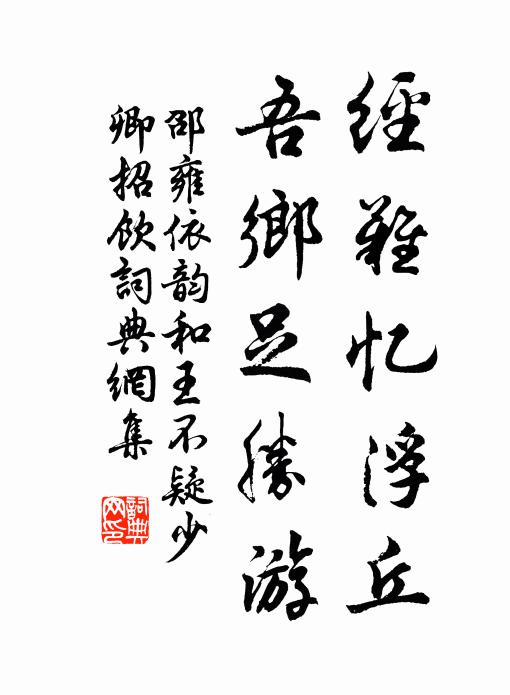 經難忆浮丘
吾鄉足勝游
邵雍依韵和王不疑少
卿招飲詞典網集
詞典网印